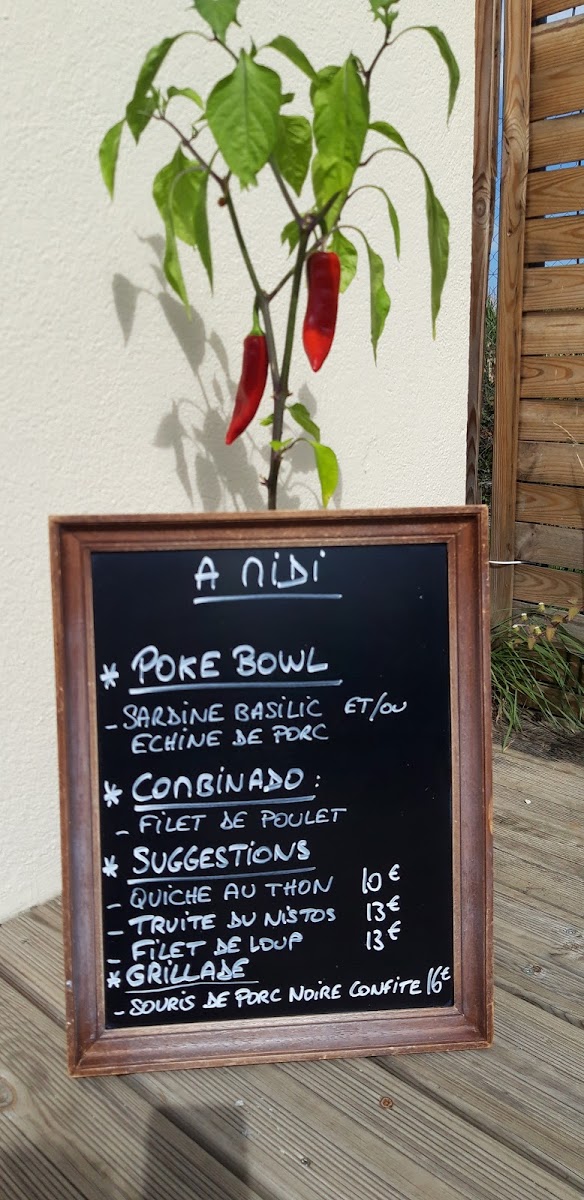 A MIDI
* POKE BOWL
- SARDINE BASILIC ET/OU
ECHINE DE PORC
* COMBINADO :
- FILET DE POULET
* SUGGESTIONS
- QUICHE AU THON 10€
- TRUITE DU NISTOS 13€
- FILET DE LOUP 13€
* GRILLADE
- SOURIS DE PORC NOIRE CONFITE 16€